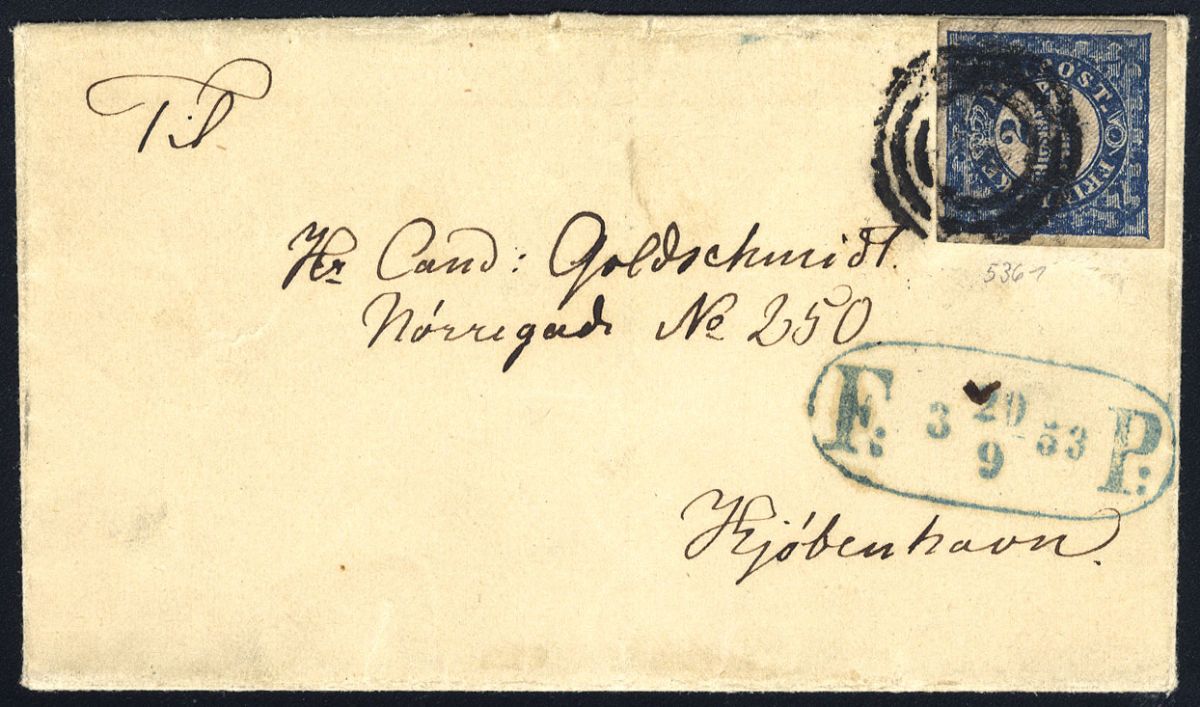 Til
POST.
2
5361
Hr Cand: Goldschmidt.
Nörregade No 250
F: 3 20/9 53 P:
Kjöbenhavn.